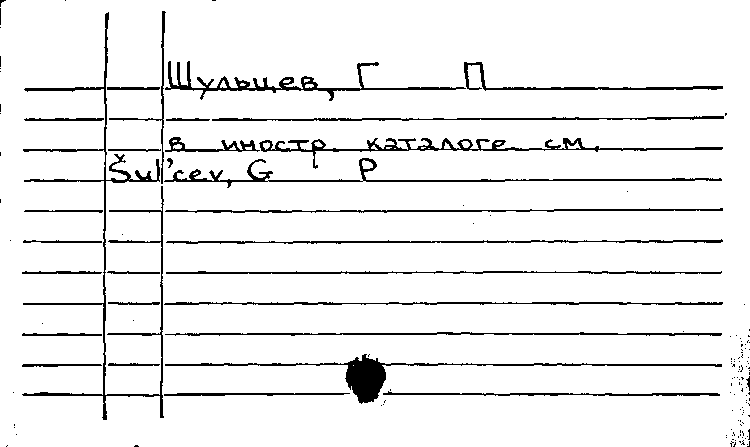 Шульцев, Г П
в иностр. каталоге см.
Šul'cev, G P